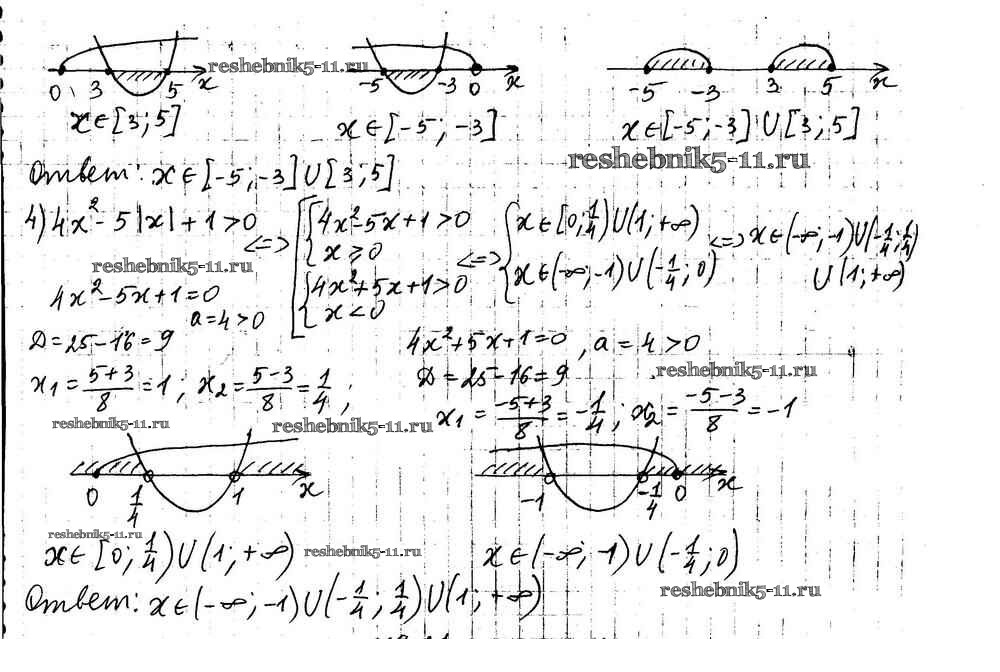 0 3 5 x
-5 -3 0 x
-5 -3 3 5 x
reshebnik5-11.ru
x∈[3;5]
x∈[-5;-3]
x∈[-5;-3]∪[3;5]
reshebnik5-11.ru
Ответ: x∈[-5;-3]∪[3;5]
4) 4x²-5|x|+1>0 <=> [{4x²-5x+1>0 x≥0 {4x²+5x+1>0 x<0 <=> {x∈[0;1/4)∪(1;+∞) x∈(-∞;-1)∪(-1/4;0) <=> x∈(-∞;-1)∪(-1/4;1/4) ∪(1;+∞)
reshebnik5-11.ru
4x²-5x+1=0
a=4>0
D=25-16=9
x₁=(5+3)/8=1; x₂=(5-3)/8=1/4;
4x²+5x+1=0, a=4>0
D=25-16=9
reshebnik5-11.ru
x₁=(-5+3)/8=-1/4; x₂=(-5-3)/8=-1
reshebnik5-11.ru
reshebnik5-11.ru
0 1/4 1 x
-1 -1/4 0 x
reshebnik5-11.ru
x∈[0;1/4)∪(1;+∞)
reshebnik5-11.ru
x∈(-∞;-1)∪(-1/4;0)
reshebnik5-11.ru
Ответ: x∈(-∞;-1)∪(-1/4;1/4)∪(1;+∞)